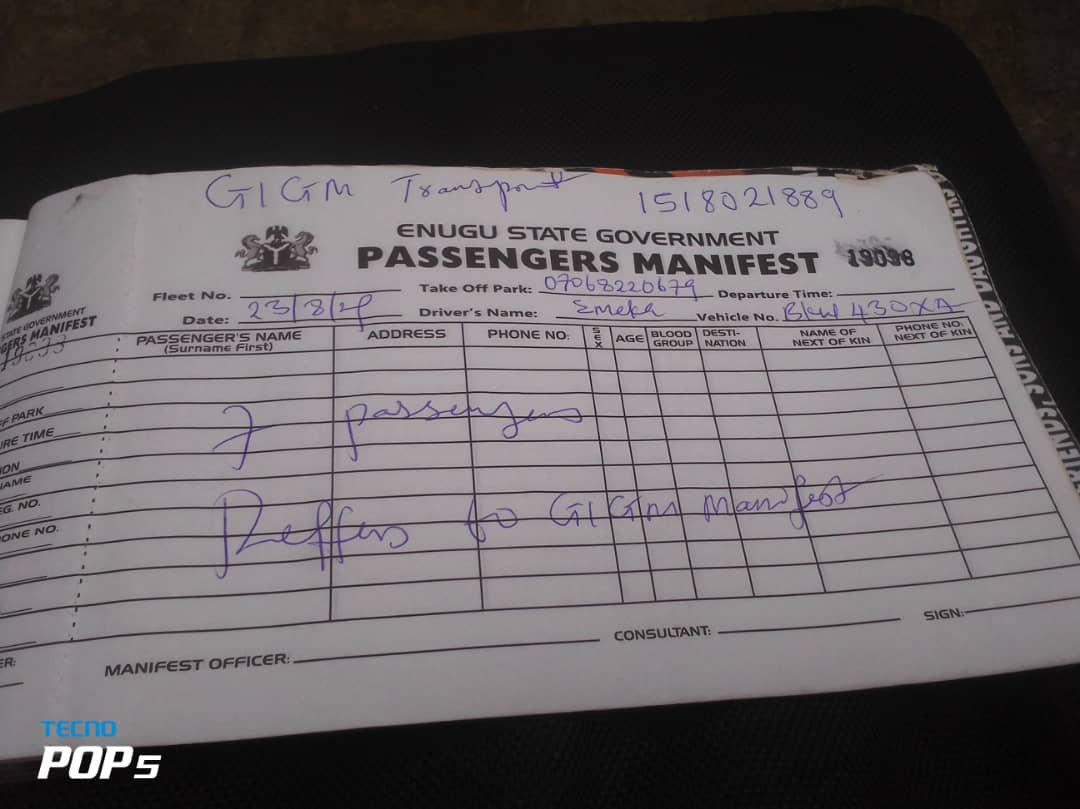 GIGM Transport 1518021889
ENUGU STATE GOVERNMENT
PASSENGERS MANIFEST 19098
Fleet No. Take Off Park: 07068220679 Departure Time:
Date: 23/8/2 Driver's Name: Emeka Vehicle No. 430XA
PASSENGER'S NAME (Surname First) ADDRESS PHONE NO: SEX AGE BLOOD GROUP DESTI-NATION NAME OF NEXT OF KIN PHONE NO. NEXT OF KIN
7 passengers
Reffers to GIGM Manifest
MANIFEST OFFICER: CONSULTANT: SIGN:
STATE GOVERNMENT
GERS MANIFEST
FF PARK
URE TIME
ION
NAME
EG. NO.
ONE NO.
ER:
TECNO
POP 5